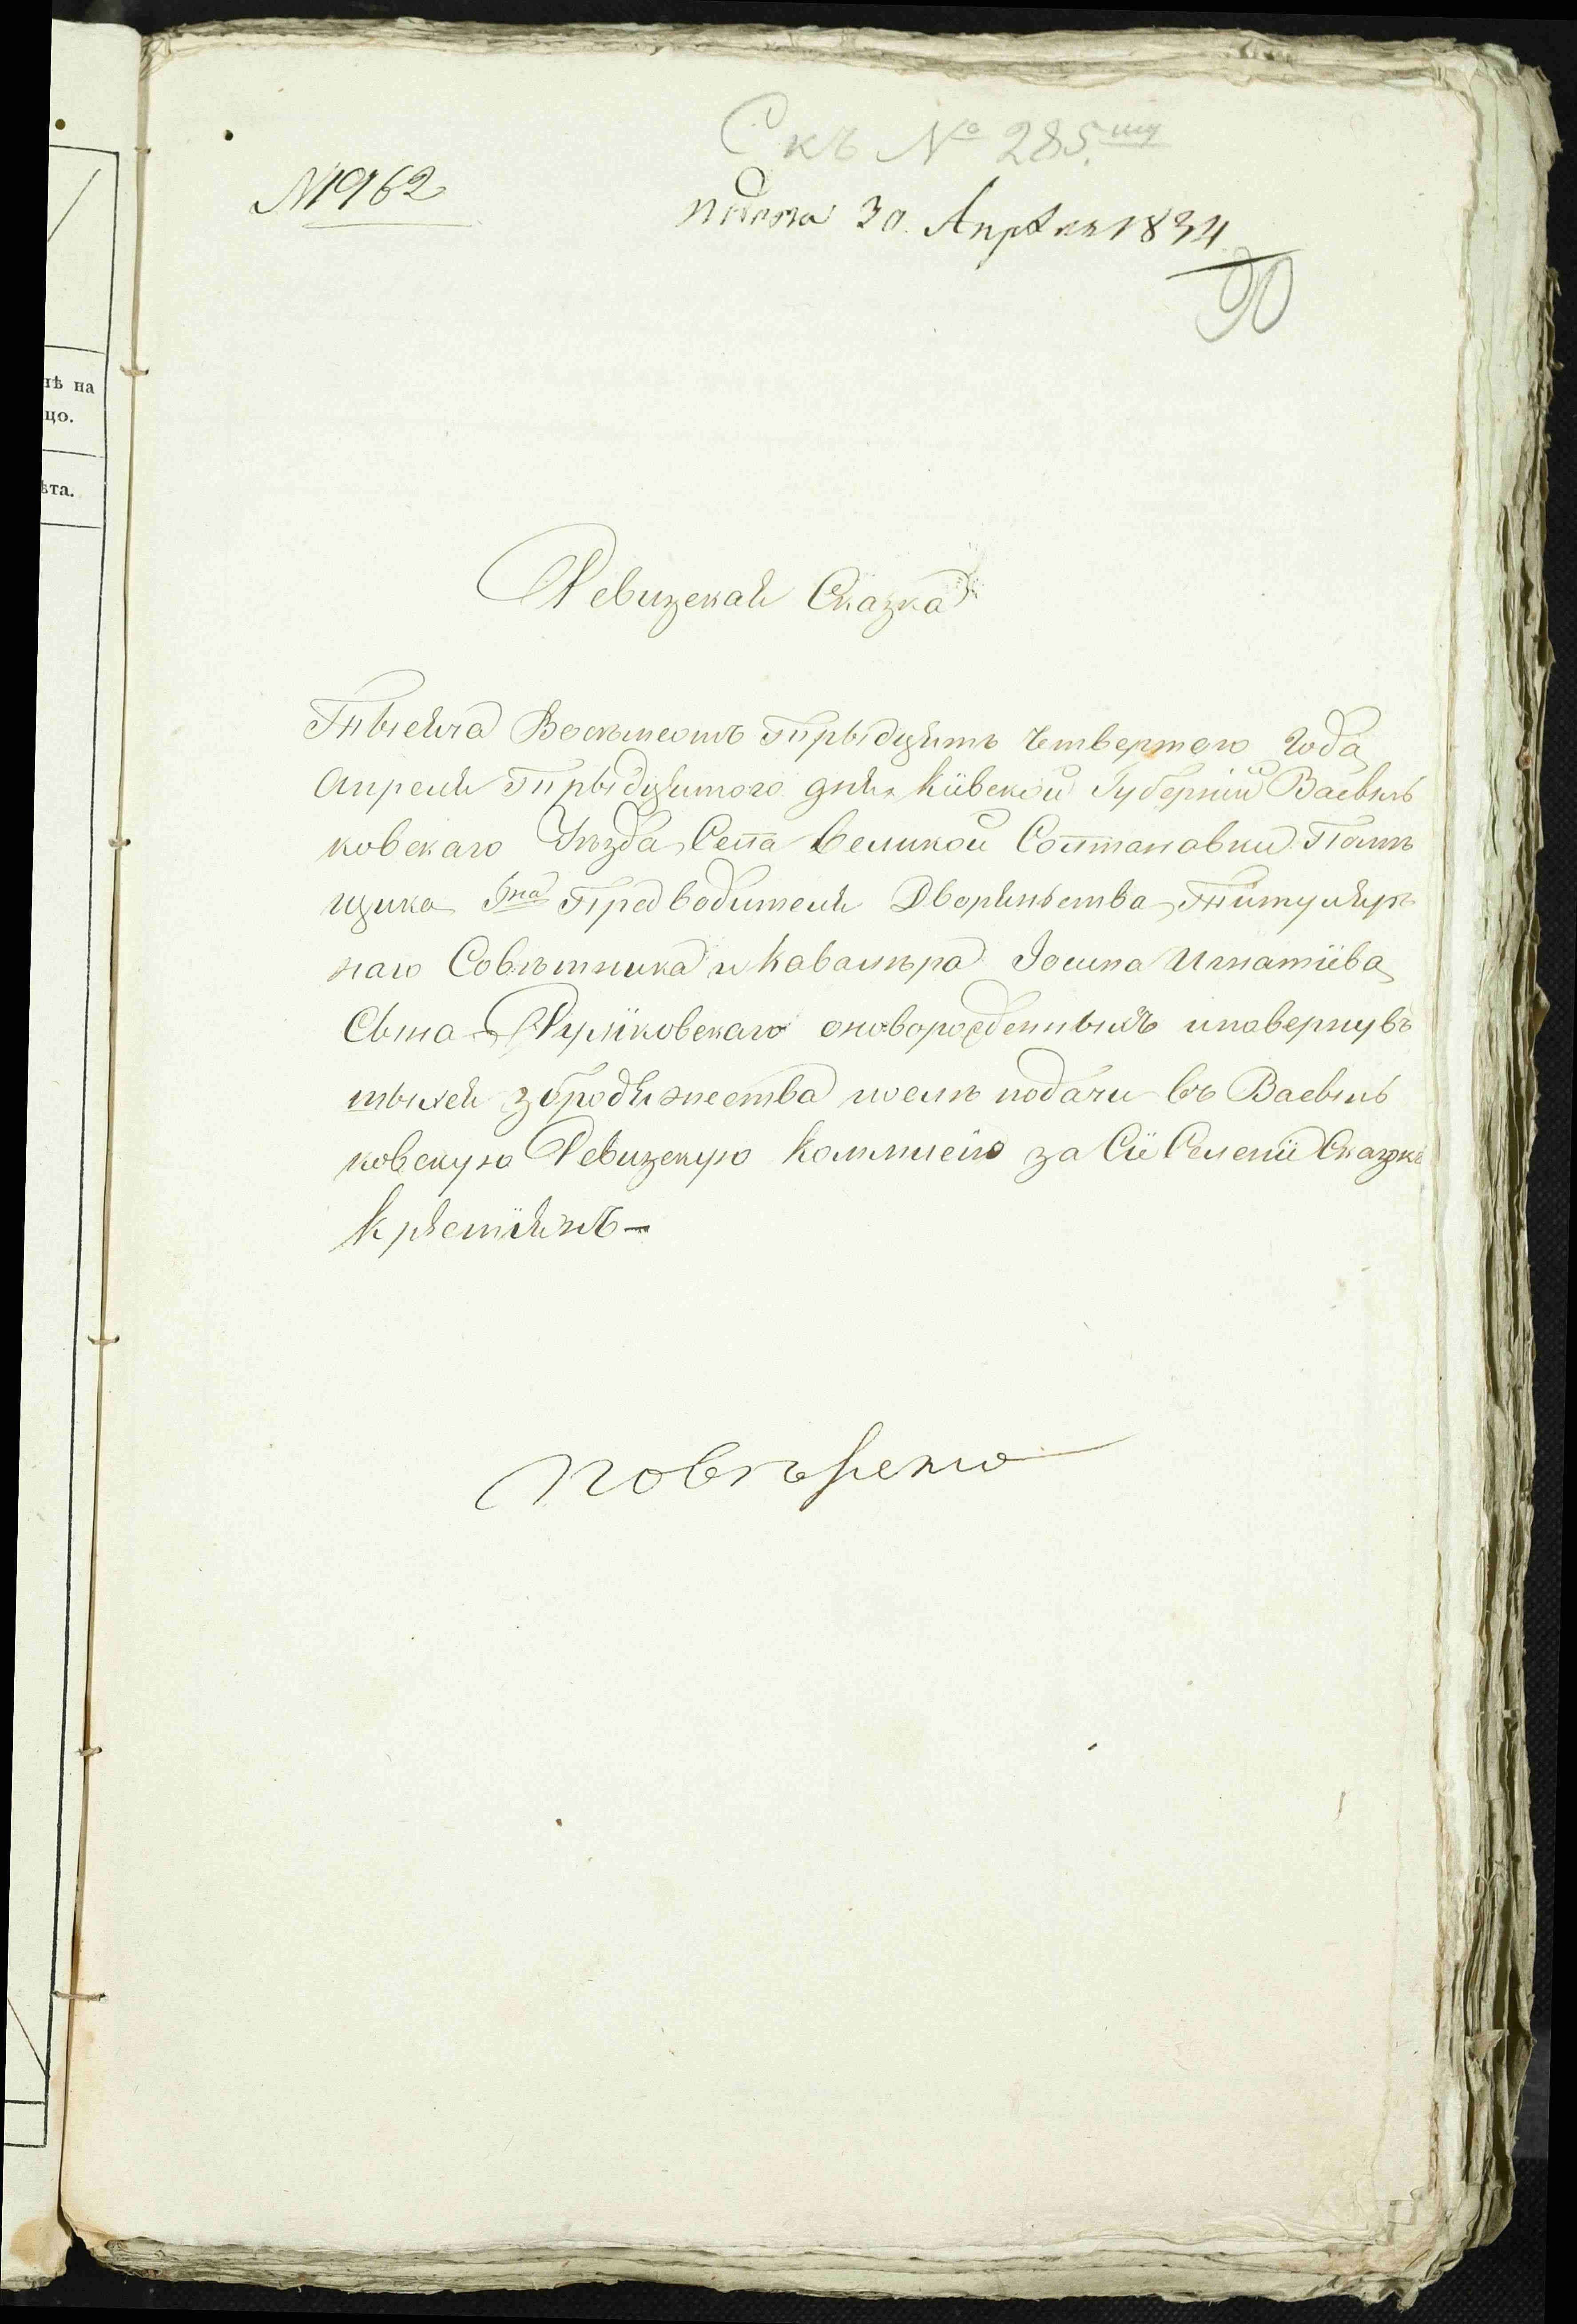 Скъ № 285.му
№ 962
подана 30. Апрѣля 1834
90
нѣ на
цо.
ѣта.
Ревизская Сказка
Тысяча Восъмсотъ Трыдцять Четвертого Года
Апреля Трыдцятого дня Кіивской Губерніи Васыль
ковскаго Уѣзда Села Великой Солтановки Помѣ
щика Гна Предводителя Дворяньства Титуляръ
наго Совѣтника и Кавалѣра Іосипа Игнатіива
Сына Руликовскаго оноворожденныхъ иповернувъ
шыхся збродяжества послѣ подачи въ Васыль
ковскую Ревизскую Коммисію за Сіе Селеніе Сказки
Крястіянъ
повѣрено